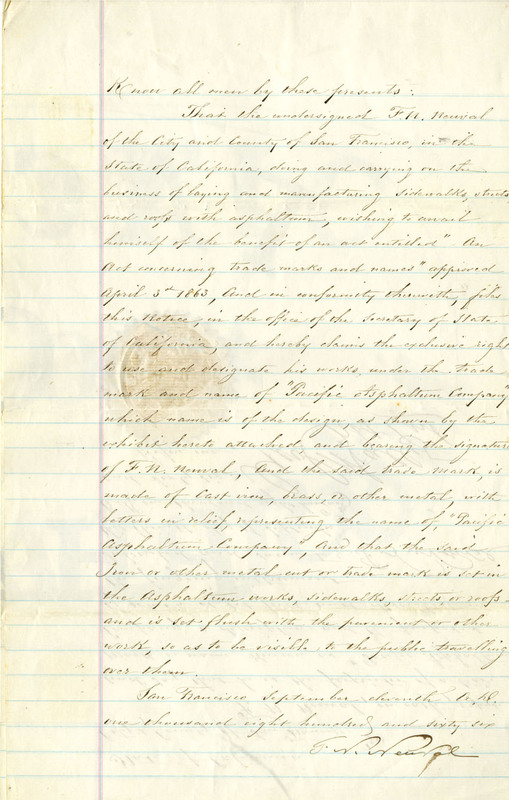 Know all men by these presents:
That the undersigned F. N. Neuval
of the City and County of San Francisco, in the
State of California, doing and carrying on the
business of laying and manufacturing sidewalks, streets
and roofs with asphaltum, wishing to avail
himself of the benefit of an act entitled "An
Act concerning trade marks and names" approved
April 3rd 1863, And in conformity therewith, files
this Notice, in the office of the Secretary of State
of California, and hereby claims the exclusive right
to use and designate his works, under the trade
mark and name of "Pacific Asphaltum Company"
which name is of the design, as shown by the
exhibit hereto attached and bearing the signature
of F. N. Neuval, And the said trade mark, is
made of Cast iron, brass, or other metal, with
letters in relief, representing the name of, "Pacific
Asphaltum Company", And that the said
Iron or other metal cut or trade mark is set in
the Asphaltum works, sidewalks, streets, or roofs
and is set flush with the pavement or other
work, so as to be visible to the public travelling
over them.
San Francisco September eleventh A.D.
one thousand eight hundred and sixty six
F. N. Neuval